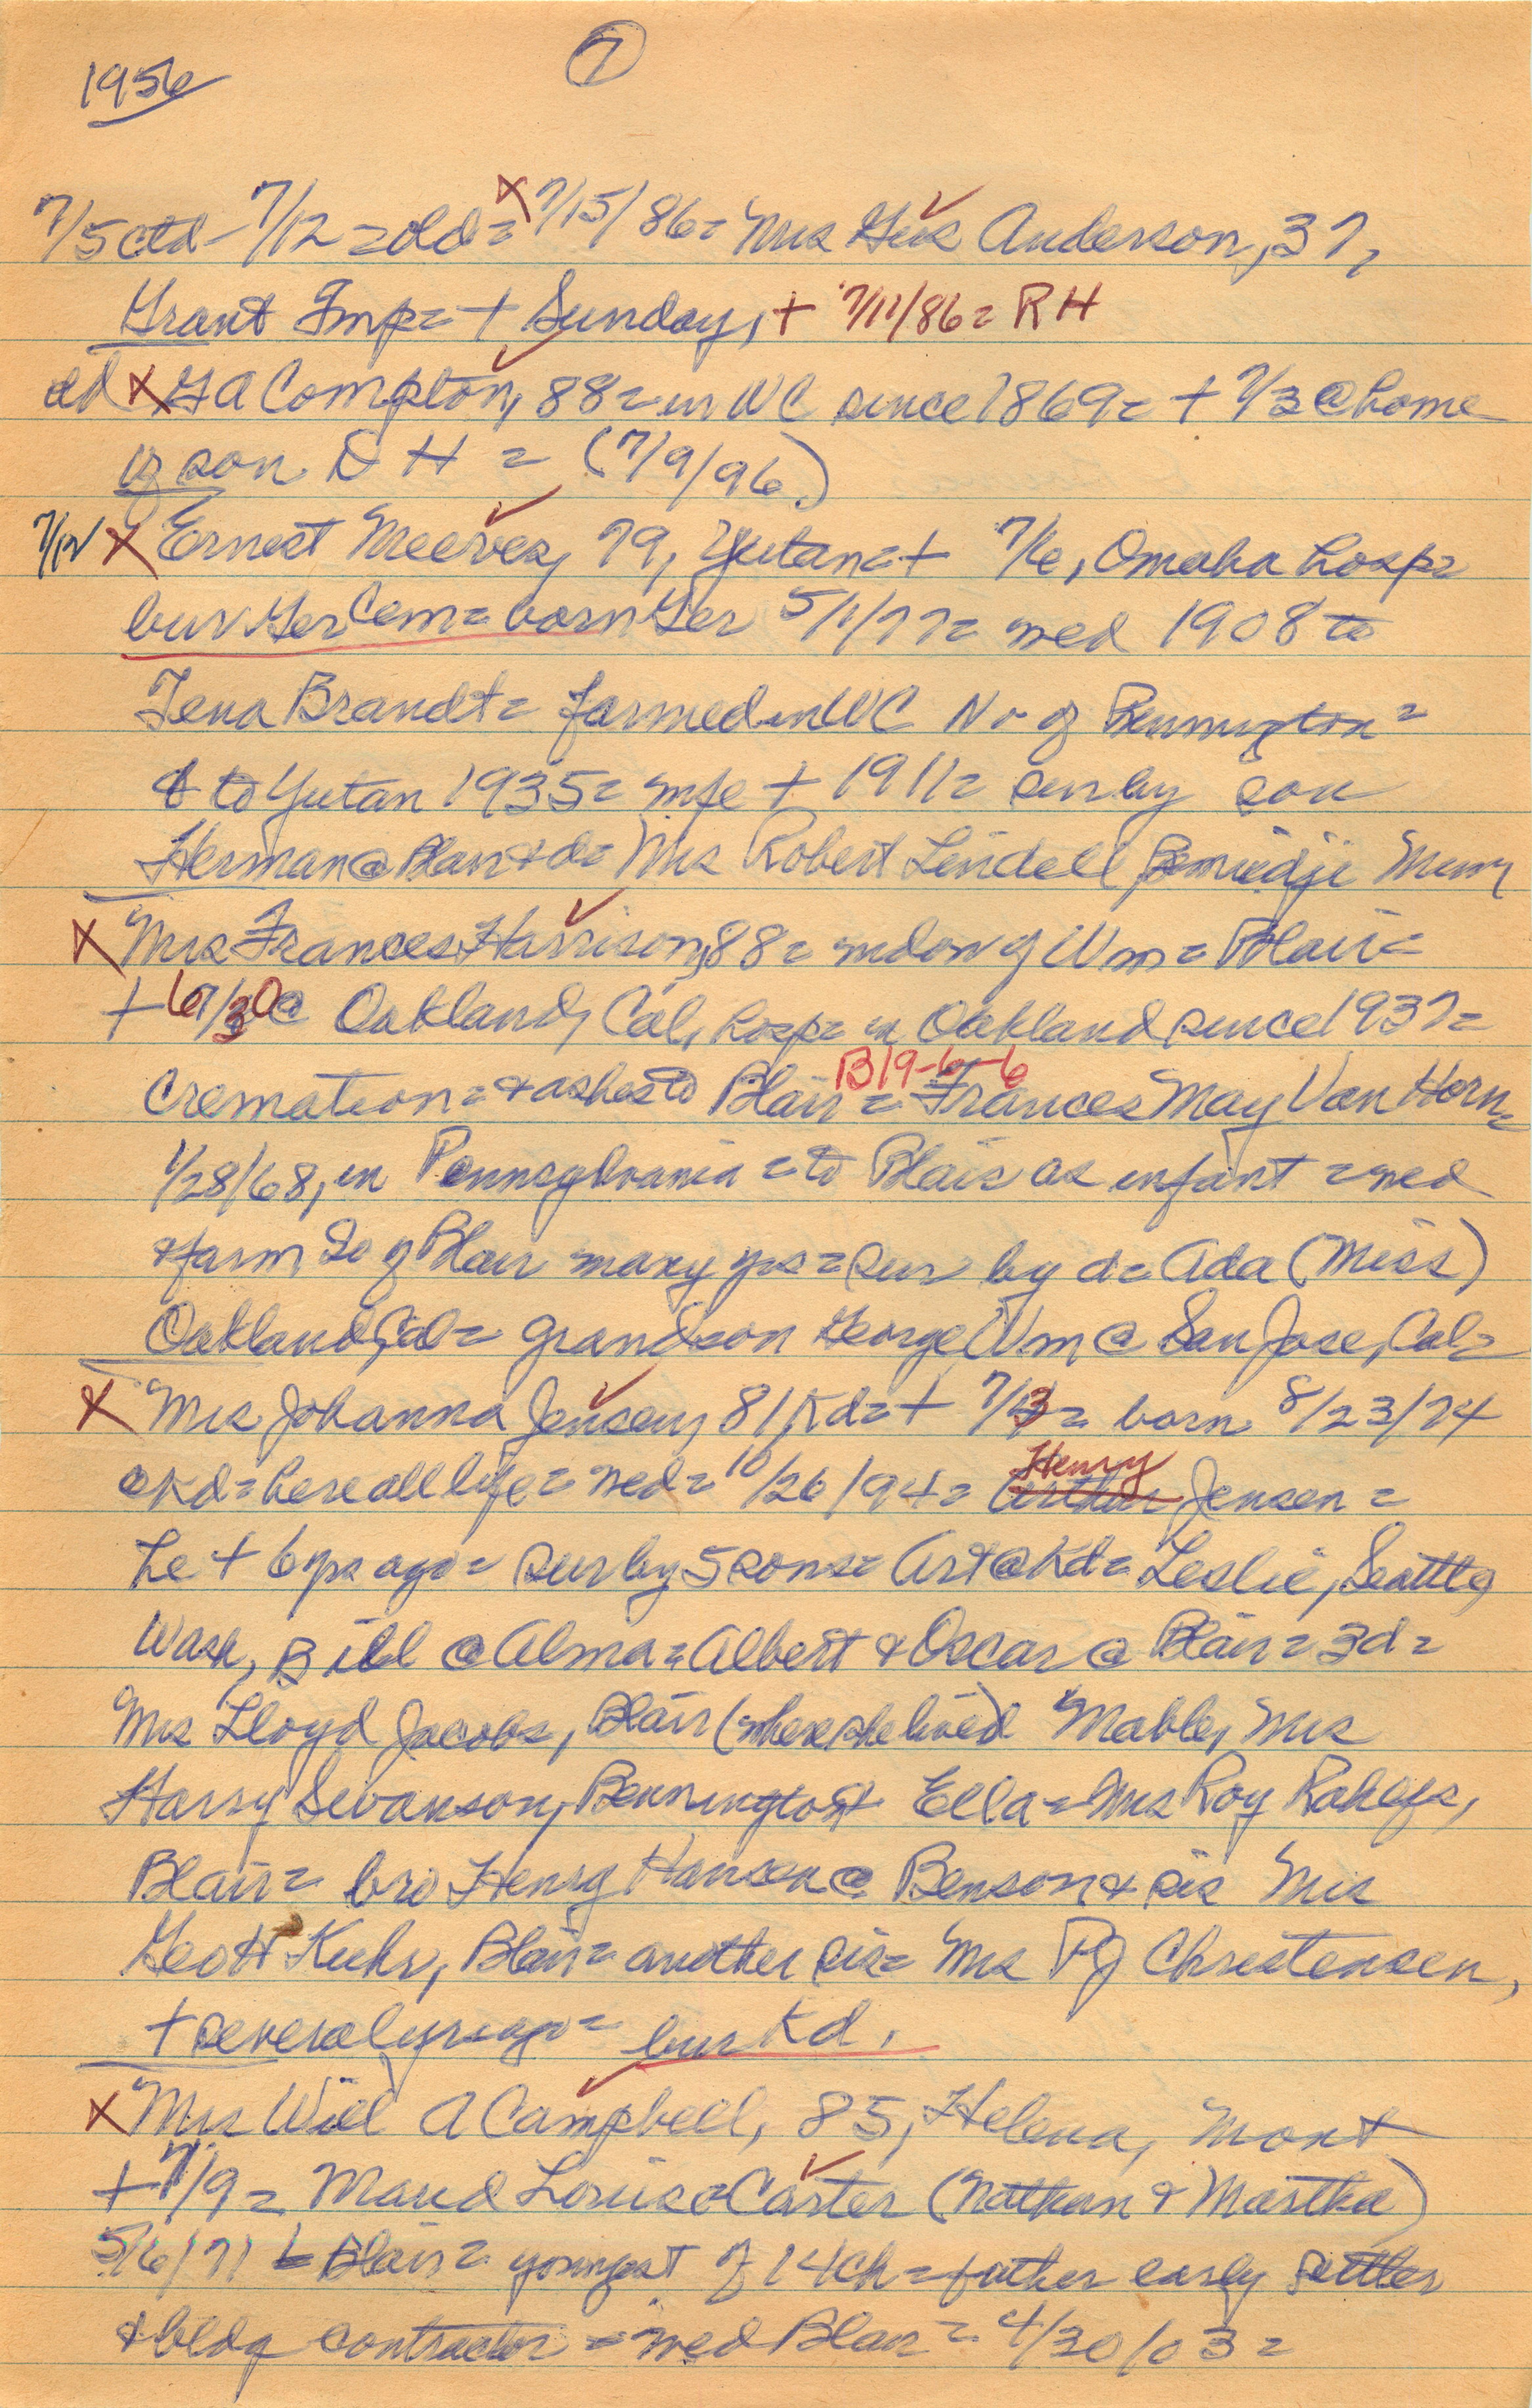 1956
7
7/5 ctd - 7/12 = old = x 7/15/86 = Mrs Gus Anderson, 37,
Grant Imp = + Sunday, + 7/11/86 = RH
old x G A Compton, 88 = in WC since 1869 = + 7/3 @ home
of son D H = (7/9/96)
7/12 x Ernest Meeves, 79, Yutan = + 7/6, Omaha hosp =
bur Ger Cem = born Ger 5/1/77 = wed 1908 to
Tena Brandt = farmed in WC No of Bennington =
& to Yutan 1935 = wife + 1911 = sur by son
Herman @ Blair & d = Mrs Robert Lindell, Bemidji Minn
x Mrs Frances Harrison, 88 = widow of Wm = Blair =
+ 6/30 @ Oakland, Cal, hosp = in Oakland since 1937 =
B19-6-6
Cremation = & ashes to Blair = Frances May Van Horn =
1/28/68, in Pennsylvania = to Blair as infant = wed
& farm So of Blair many yrs = sur by d = Ada (Miss)
Oakland, Cal = grandson George Wm @ San Jose, Cal =
x Mrs Johanna Jensen, 81, Kd = + 7/3 = born 8/23/74
Henry
@ Kd = here all life = wed = 10/26/94 = Arthur Jensen =
he + 6 yrs ago = sur by 5 sons = Art @ Kd = Leslie, Seattle,
Wash, Bill @ Alma = Albert & Oscar @ Blair = 3 d =
Mrs Lloyd Jacobs, Blair (where she lived) Mable, Mrs
Harry Swanson, Bennington & Ella = Mrs Roy Rahlfs,
Blair = bro Henry Hansen @ Benson & sis Mrs
Geo H Kuhr, Blair = another sis = Mrs P J Christensen,
+ several yrs ago = bur Kd.
x Mrs Will A Campbell, 85, Helena, Mont
+ 7/9 = Maud Louise Carter (Nathan & Martha)
5/6/71 Blair = youngest of 14 ch = father early settler
& bldg contractor = wed Blair = 4/30/03 =